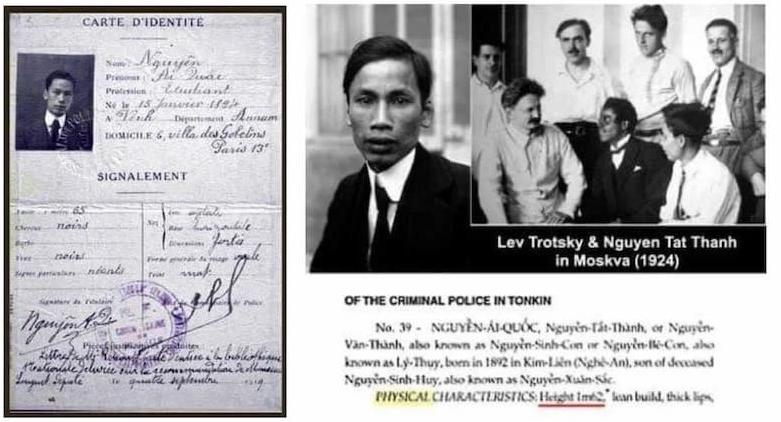 CARTE D'IDENTITÉ
Nom: Nguyên
Prénoms: Ai Quâc
Profession: Etudiant
Né le 15 Janvier 1894
A Vinh Département Annam
DOMICILE 6, villa des Gobelins
Paris 13e
SIGNALEMENT
1 mètre 65
Cheveux noirs
Barbe
Yeux noirs
Signes particuliers néants
Nez
Dos
Base
Dimensions fortes
Forme générale du visage ovale
Teint mat
Signature du Titulaire
de Police
Nguyên Ai
Pièces justificatives produites
Lettre
bibliothèque
Nationale délivrée sur la recommandation de Monsieur
Longuet député le quatre septembre 1919
Lev Trotsky & Nguyen Tat Thanh
in Moskva (1924)
OF THE CRIMINAL POLICE IN TONKIN
No. 39 - NGUYỄN-ÁI-QUỐC, Nguyễn-Tất-Thành, or Nguyễn-
Văn-Thành, also known as Nguyễn-Sinh-Con or Nguyễn-Bé-Con, also
known as Lý-Thụy, born in 1892 in Kim-Liên (Nghệ-An), son of deceased
Nguyễn-Sinh-Huy, also known as Nguyễn-Xuân-Sắc.
PHYSICAL CHARACTERISTICS: Height 1m62,* lean build, thick lips,